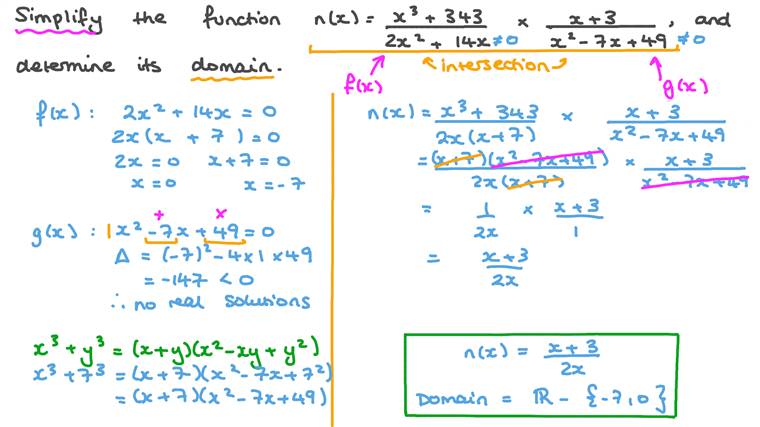 Simplify the function n(x) = x³ + 343 / 2x² + 14x ≠0 × x + 3 / x² - 7x + 49 ≠0 , and
determine its domain.
intersection
f(x)
g(x)
f(x) : 2x² + 14x = 0
2x(x + 7) = 0
2x = 0 x + 7 = 0
x = 0 x = -7
+ ×
g(x) : 1x² - 7x + 49 = 0
Δ = (-7)² - 4 × 1 × 49
= -147 < 0
∴ no real solutions
x³ + y³ = (x + y)(x² - xy + y²)
x³ + 7³ = (x + 7)(x² - 7x + 7²)
= (x + 7)(x² - 7x + 49)
n(x) = x³ + 343 / 2x(x + 7) × x + 3 / x² - 7x + 49
= (x + 7)(x² - 7x + 49) / 2x(x + 7) × x + 3 / x² - 7x + 49
= 1 / 2x × x + 3 / 1
= x + 3 / 2x
n(x) = x + 3 / 2x
Domain = ℝ - {-7, 0}